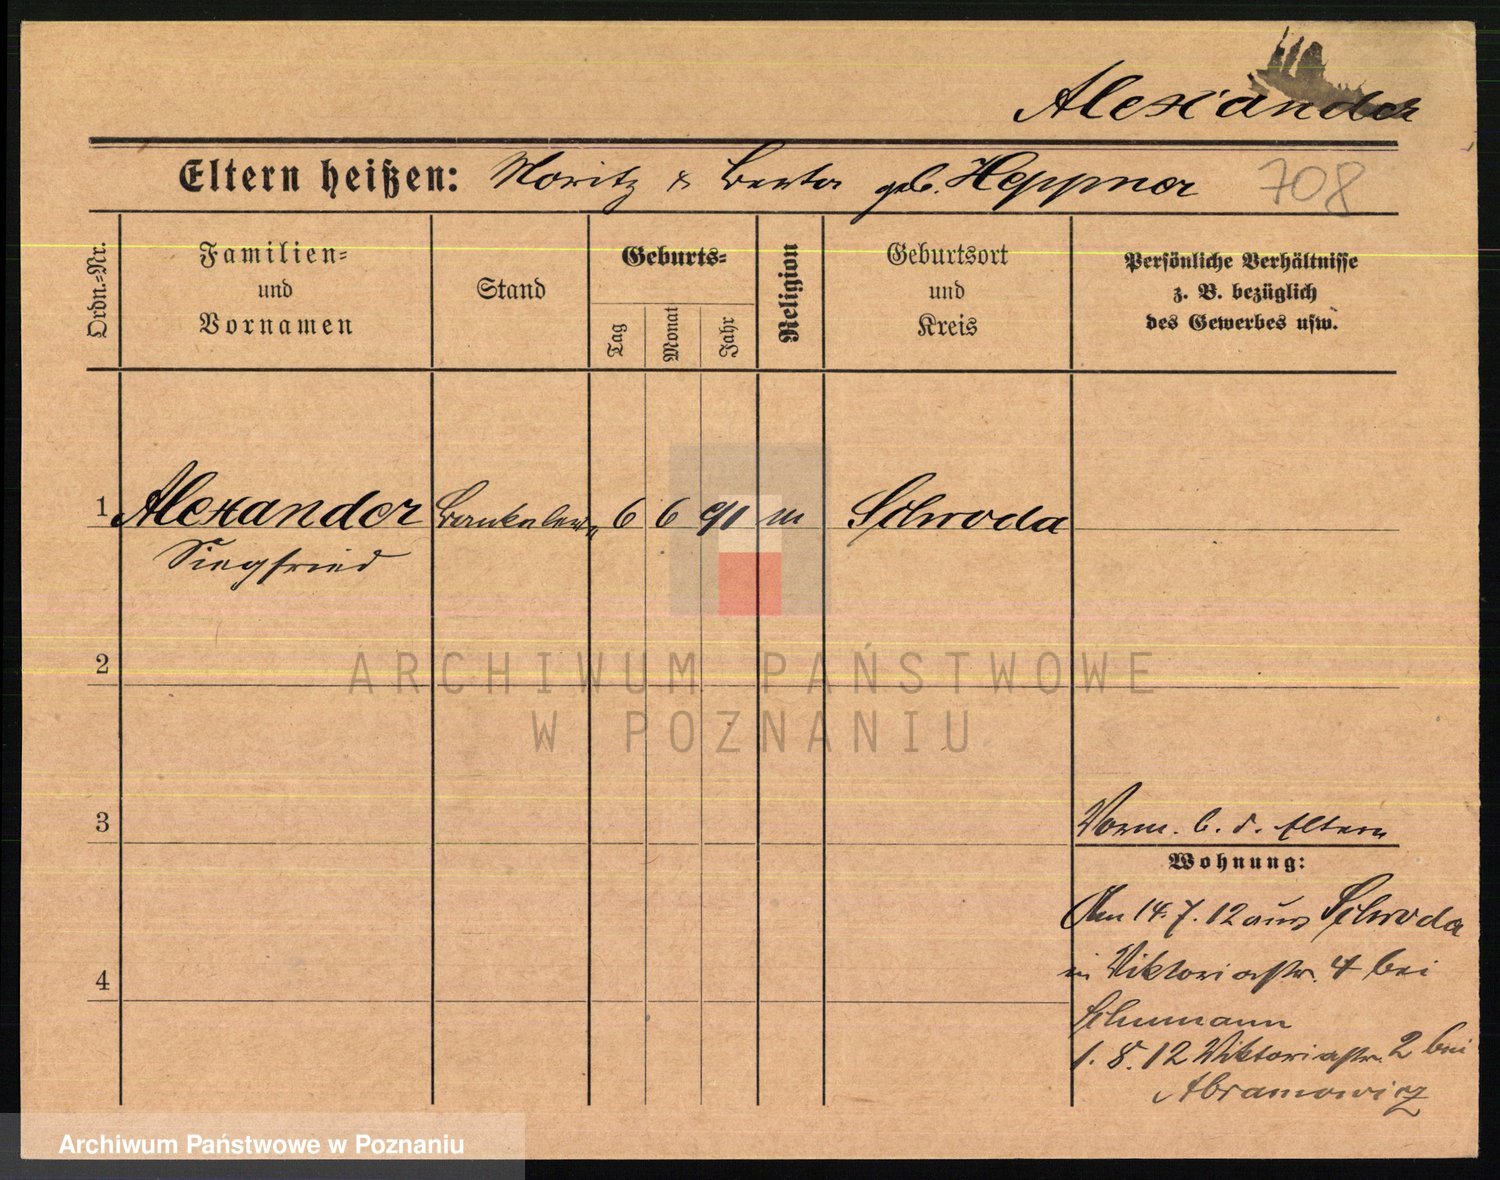 Alexander
Eltern heißen: Moritz & Berta geb. Heppner 708
Ordn.-Nr.
Familien-
und
Vornamen
Stand
Geburts-
Tag
Monat
Jahr
Religion
Geburtsort
und
Kreis
Persönliche Verhältnisse
z. B. bezüglich
des Gewerbes usw.
1 Alexander 6 6 91 m Schroda
Siegfried
2
ARCHIWUM PAŃSTWOWE
W POZNANIU
3
Vorm. b. d. Eltern
Wohnung:
Am 14.7.12 aus Schroda
in Viktoriastr. 4 bei
4
Schumann
1.8.12 Viktoriastr. 2 bei
Abramowicz
Archiwum Państwowe w Poznaniu